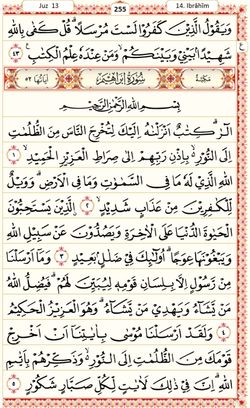 Juz 13 255 14. Ibrâhîm
وَيَقُولُ الَّذِينَ كَفَرُوا لَسْتَ مُرْسَلًا ۚ قُلْ كَفَىٰ بِاللَّهِ
شَهِيدًا بَيْنِي وَبَيْنَكُمْ ۙ وَمَنْ عِنْدَهُ عِلْمُ الْكِتٰبِ ﴿٤٣﴾
مَكِّيَّة سُورَةُ إِبْرَاهِيمَ اٰيَاتُهَا ٥٢
بِسْمِ اللَّهِ الرَّحْمٰنِ الرَّحِيمِ
الٓرٰ ۚ كِتٰبٌ أَنْزَلْنٰهُ إِلَيْكَ لِتُخْرِجَ النَّاسَ مِنَ الظُّلُمٰتِ
إِلَى النُّورِ ۙ بِإِذْنِ رَبِّهِمْ إِلَىٰ صِرَاطِ الْعَزِيزِ الْحَمِيدِ ﴿١﴾
اللَّهِ الَّذِي لَهُ مَا فِي السَّمٰوٰتِ وَمَا فِي الْأَرْضِ ۗ وَوَيْلٌ
لِلْكٰفِرِينَ مِنْ عَذَابٍ شَدِيدٍ ﴿٢﴾ الَّذِينَ يَسْتَحِبُّونَ
الْحَيٰوةَ الدُّنْيَا عَلَى الْاٰخِرَةِ وَيَصُدُّونَ عَنْ سَبِيلِ اللَّهِ
وَيَبْغُونَهَا عِوَجًا ۚ أُولٰٓئِكَ فِي ضَلٰلٍ بَعِيدٍ ﴿٣﴾ وَمَا أَرْسَلْنَا
مِنْ رَسُولٍ إِلَّا بِلِسَانِ قَوْمِهِ لِيُبَيِّنَ لَهُمْ ۖ فَيُضِلُّ اللَّهُ
مَنْ يَشَاءُ وَيَهْدِي مَنْ يَشَاءُ ۚ وَهُوَ الْعَزِيزُ الْحَكِيمُ
﴿٤﴾ وَلَقَدْ أَرْسَلْنَا مُوسَىٰ بِاٰيٰتِنَا أَنْ أَخْرِجْ
قَوْمَكَ مِنَ الظُّلُمٰتِ إِلَى النُّورِ ۙ وَذَكِّرْهُمْ بِأَيّٰمِ
اللَّهِ ۚ إِنَّ فِي ذٰلِكَ لَاٰيٰتٍ لِكُلِّ صَبَّارٍ شَكُورٍ ﴿٥﴾